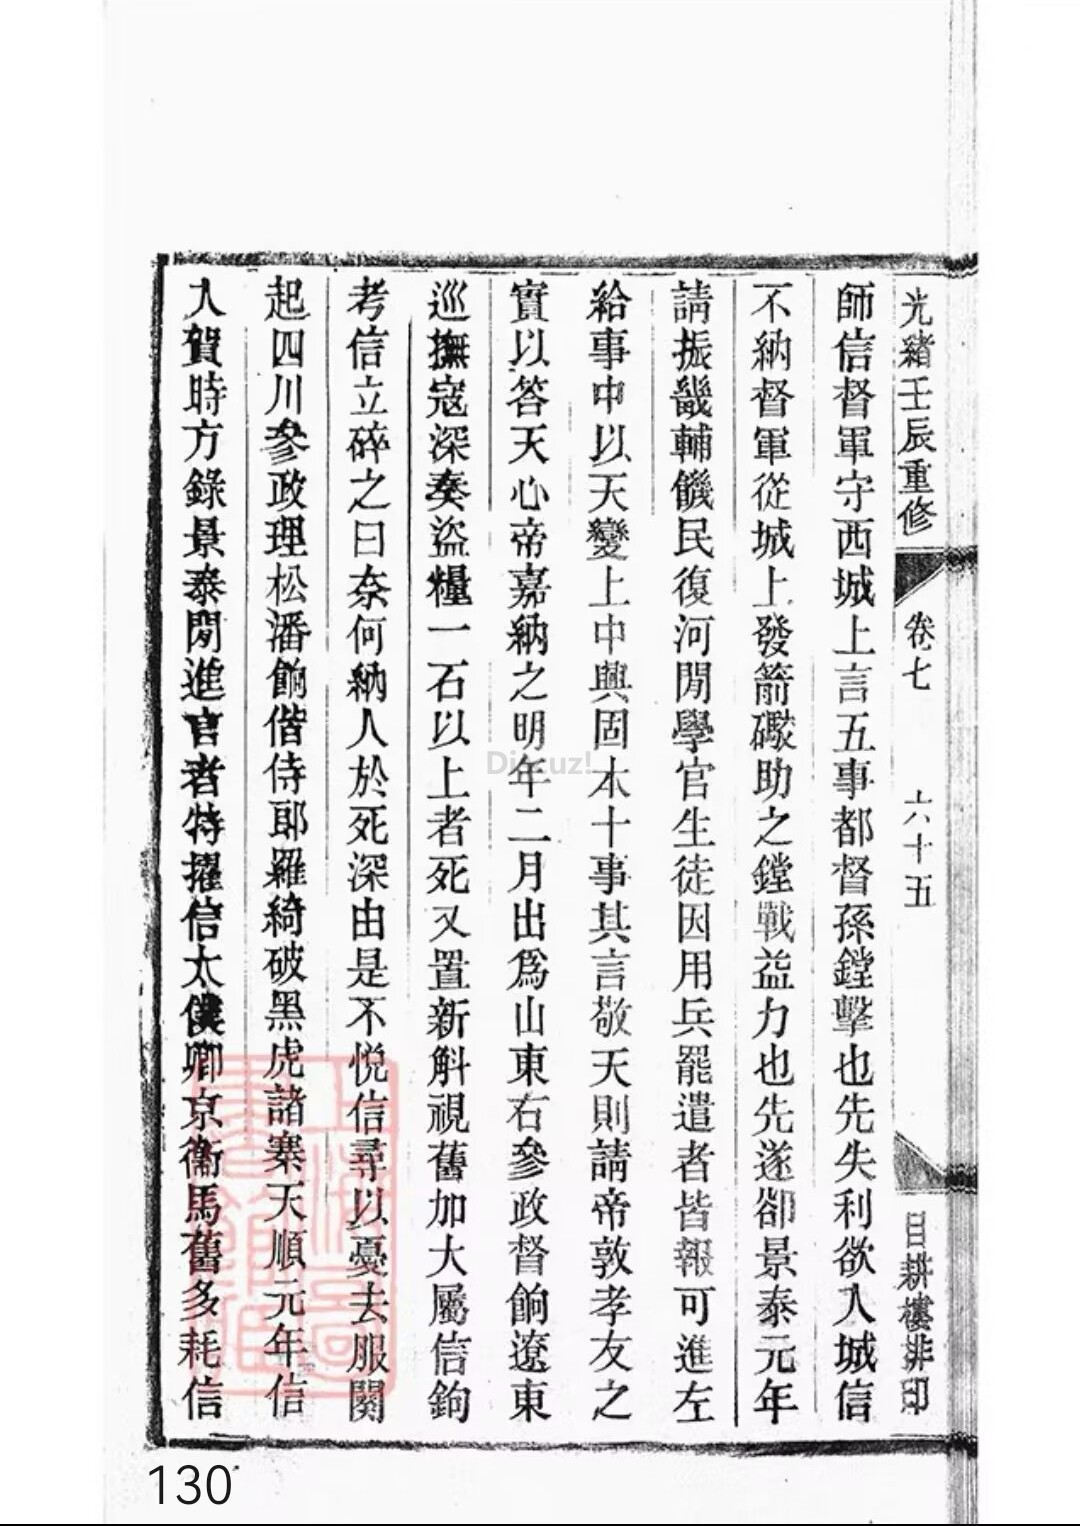 光緒壬辰重修
卷七
六十五
目耕樓排印
師信督軍守西城上言五事都督孫鏜擊也先失利欲入城信
不納督軍從城上發箭礮助之鏜戰益力也先遂卻景泰元年
請振畿輔饑民復河閒學官生徒因用兵罷遣者皆報可進左
給事中以天變上中興固本十事其言敬天則請帝敦孝友之
實以答天心帝嘉納之明年二月出爲山東右參政督餉遼東
巡撫寇深奏盜糧一石以上者死又置新斛視舊加大屬信鉤
考信立碎之曰奈何納人於死深由是不悅信尋以憂去服闋
起四川參政理松潘餉偕侍郎羅綺破黑虎諸寨天順元年信
入賀時方錄景泰閒進官者特擢信太僕卿京衞馬舊多耗信
Discuz!
130